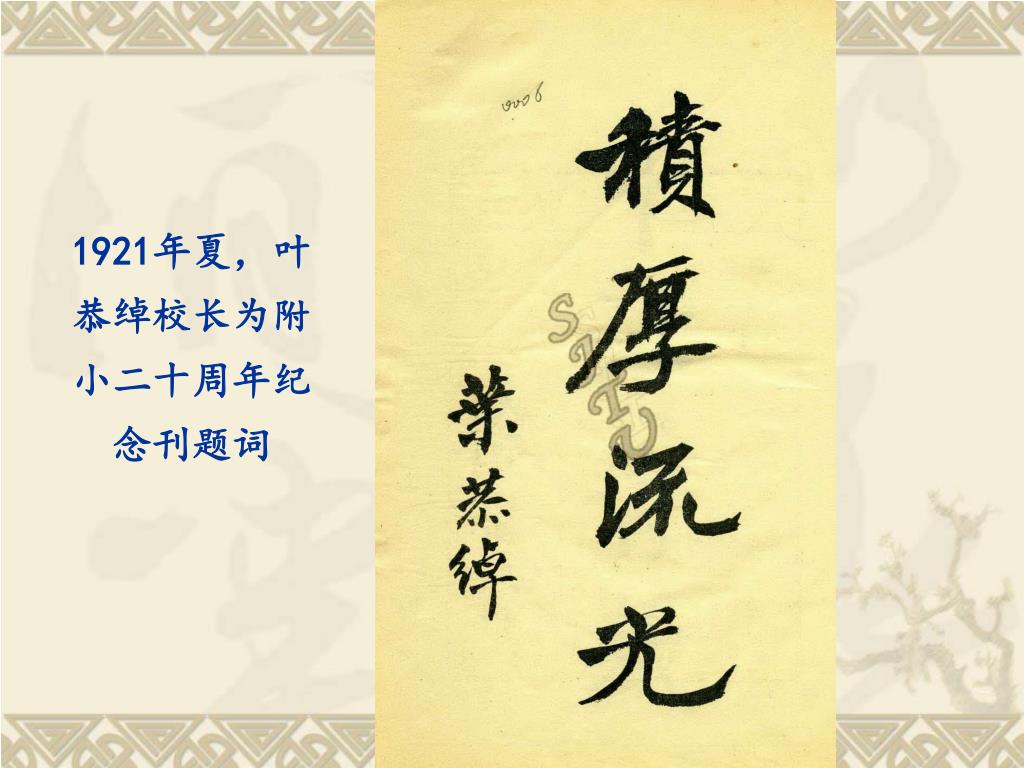 1921年夏，叶
恭绰校长为附
小二十周年纪
念刊题词
0006
積厚流光
葉恭绰
SJTU